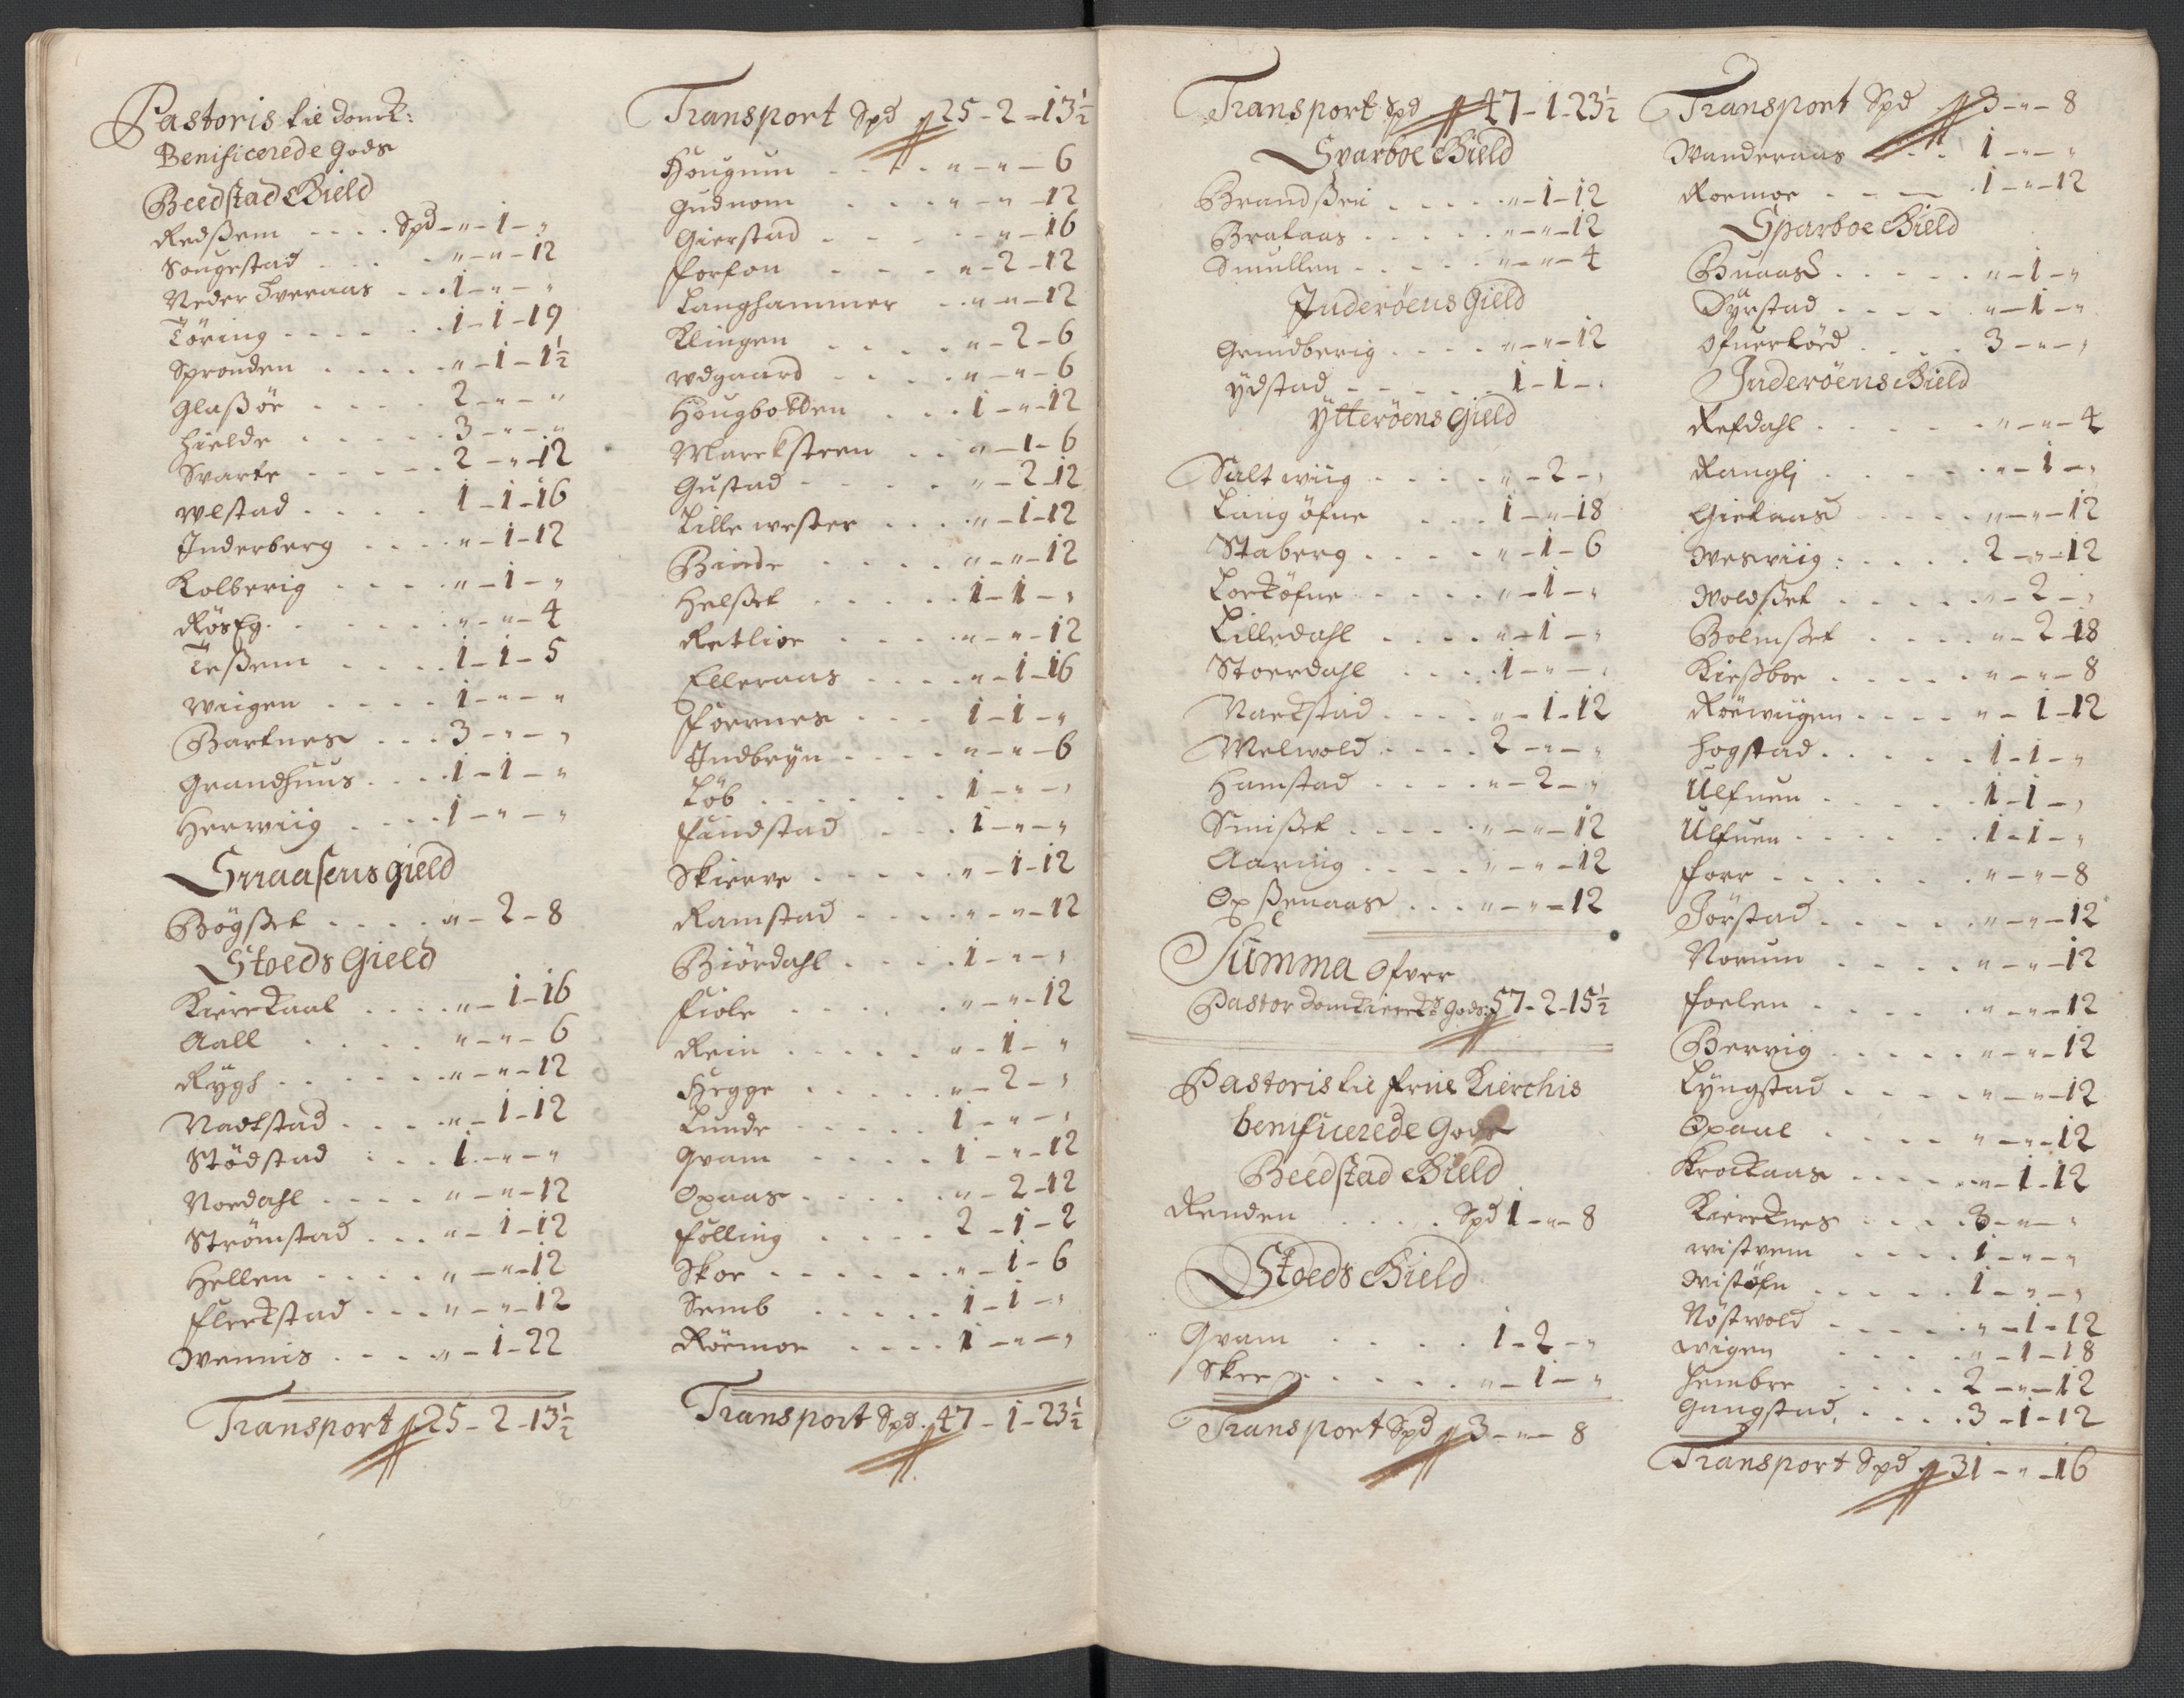 Pastoris til Domk:
Benificerede Gods
Beedstad Gield
Redssem . . . . Spd - " - 1 - "
Sougestad . . . " - " - 12
Neder Överaas . . 1 - " - "
Töring . . . . 1 - 1 - 19
Spronden . . . . " - 1 - 1½
Glassöe . . . . 2 - " - "
Hielde . . . . . 3 - " - "
Svarte . . . . . 2 - " - 12
Welstad . . . . 1 - 1 - 16
Inderberg . . . " - 1 - 12
Kolberig . . . . " - 1 - "
Röseg . . . . . " - " - 4
Tessem . . . . 1 - 1 - 5
Wiigen . . . . 1 - " - "
Bartnes . . . 3 - " - "
Grandhuus . . . 1 - 1 - "
Herwiig . . . . 1 - " - "
Snaasens gield
Bögsset . . . . " - 2 - 8
Stoeds Gield
Kierckaal . . . . " - 1 - 16
Aall . . . . " - " - 6
Rygh . . . . . " - " - 12
Nackstad . . . . " - 1 - 12
Stödstad . . . 1 - " - "
Nordahl . . . . " - " - 12
Strömstad . . . " - 1 - 12
Hellen . . . . " - " - 12
Fleckstad . . . " - " - 12
Wennis . . . . " - 1 - 22
Transport 25 - 2 - 13½
Transport Spd 25 - 2 - 13½
Hougum . . . . " - " - 6
Gudnom . . . . " - " - 12
Gierstad . . . . " - 16
Forfon . . . . " - 2 - 12
Langhammer . . " - " - 12
Klingen . . . . " - 2 - 6
Wdgaard . . . . " - " - 6
Hougbotten . . . 1 - " - 12
Marcksteen . . " - 1 - 6
Gustad . . . . " - 2 - 12
Lille wester . . . . " - 1 - 12
Binde . . . . " - " - 12
Helsset . . . . . 1 - 1 - "
Retlior . . . . " - " - 12
Elleraas . . . . " - 1 - 16
Foernes . . . . 1 - 1 - "
Indbryn . . . . " - " - 6
Löb . . . . . . 1 - " - "
Faundstad . . . 1 - " - "
Skierve . . . . . " - 1 - 12
Ramstad . . . . " - " - 12
Biördahl . . . . 1 - " - "
Fiole . . . . . " - " - 12
Rein . . . . . " - 1 - "
Hegge . . . . . " - 2 - "
Lunde . . . . . 1 - " - "
Qvam . . . . 1 - " - 12
Opaas . . . . . " - 2 - 12
Fölling . . . . . 2 - 1 - 2
Skoe . . . . . . " - 1 - 6
Semb . . . . . 1 - 1 - "
Röemoe . . . . 1 - " - "
Transport Spd. 47 - 1 - 23½
Transport Spd 47 - 1 - 23½
Sparboe Gield
Brandssen . . . . . " - 1 - 12
Brataas . . . . . " - " - 12
Smullen . . . . . " - " - 4
Inderöens Gield
Grindberig . . . . " - " - 12
Ydstad . . . . . . 1 - 1 - "
Ytteröens Gield
Salt wiig . . . . " - 2 - "
Lang öfne . . . 1 - " - 18
Staberg . . . . " - 1 - 6
Lorköfne . . . . " - 1 - "
Lilledahl . . . . " - 1 - "
Stoerdahl . . . . 1 - " - "
Nackstad . . . . " - 1 - 12
Melwold . . . . 2 - " - "
Hamstad . . . . " - 2 - "
Smisset . . . . . " - " - 12
Aaring . . . . " - " - 12
Opssenaas . . . " - " - 12
Summa Ofver
Pastor Domkierckes Gods: 57 - 2 - 15½
Pastoris til frue Kierchis
benificerede Gods
Beedstad Gield
Renden . . . . Spd 1 - " - 8
Stoeds Gield
Qvam . . . . 1 - 2 - "
Skee . . . . . . " - 1 - "
Transport Spd 3 - " - 8
Transport Spd 3 - " - 8
Wanderaas . . . 1 - " - "
Roemoe . . . . 1 - " - 12
Sparboe Gield
Buaas . . . . . " - 1 - "
Dyrstad . . . . " - 1 - "
Ofuerkörd . . . . 3 - " - "
Inderöens Gield
Refdahl . . . . . . " - " - 4
Ranglj . . . . . . " - 1 - "
Gietaas . . . . " - " - 12
Weswiig : . . . . 2 - " - 12
Woldsset . . . . " - 2 - "
Bolmsset . . . . " - 2 - 18
Kiessboe . . . . . " - " - 8
Röewiigen . . . . " - 1 - 12
Hogstad . . . . . 1 - 1 - "
Ulfuen . . . . . 1 - 1 - "
Ulfuen . . . . . . 1 - 1 - "
Forr . . . . . . " - " - 8
Jörstad . . . . . " - " - 12
Norum . . . . " - " - 12
Foelen . . . . . " - " - 12
Bervig . . . . . " - " - 12
Lyngstad . . . . " - " - 12
Opaul . . . . " - " - 12
Krockaas . . . . " - 1 - 12
Kierecknes . . . . 3 - " - "
Wistvem . . . . 1 - " - "
Wistöfn . . . . . 1 - " - "
Nöstvold . . . . . " - 1 - 12
Wigen . . . . " - 1 - 18
Hembre . . . . 2 - " - 12
Gangstad . . . . 3 - 1 - 12
Transport Spd 31 - " - 16